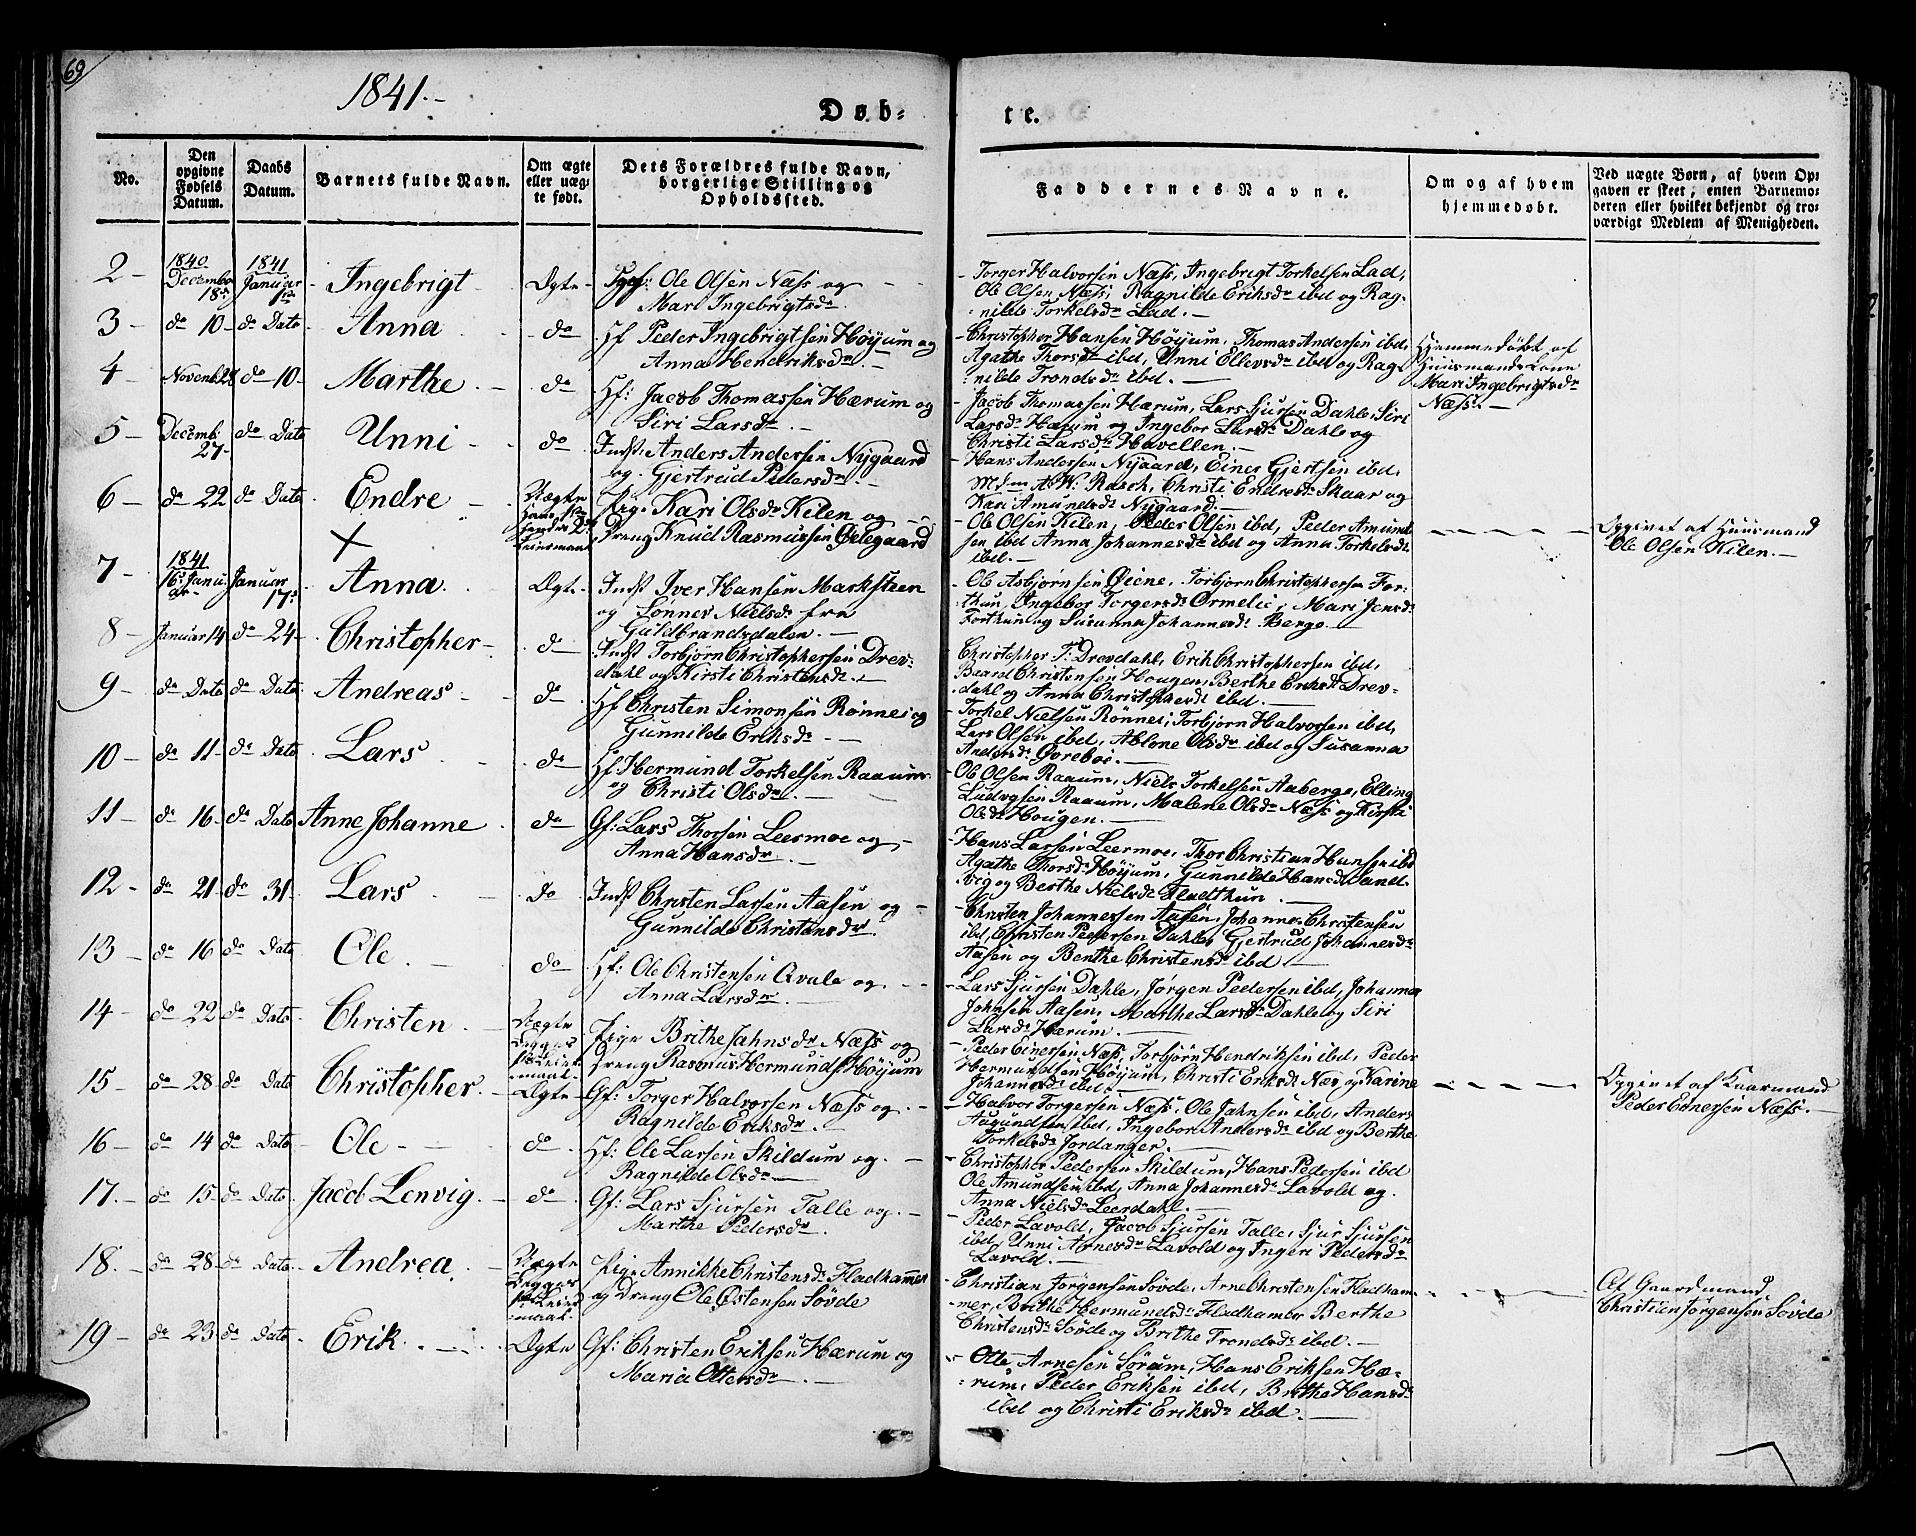 69
1841.-
Døb-
te.
No.
Den opgivne Fødsels Datum.
Daabs Datum.
Barnets fulde Navn.
Om ægte eller uægte født.
Dets Forældres fulde Navn, borgerlige Stilling og Opholdssted.
Faddernes Navne.
Om og af hvem hjemmedøbt.
Ved uægte Børn, af hvem Opgaven er skeet, enten Barnemoderen eller hvilket bekjendt og troværdigt Medlem af Menigheden.
2 - 1840 Decembr 18de 1841 Januar 1ste Ingebrigt Ægte Ole Olsen Næss og
Mari Ingebrigtsdr.
- Torger Halvorsen Næss, Ingebrigt Torkelsen Lad,
Ole Olsen Næss, Ragnilde Eriksdr ibd og Rag-
nilde Torkelsdr Lad. -
3 - do 10 - do Dato - Anna - do Hf Peder Ingebrigtsen Høyum og
Anna Hendriksdr. -
- Christopher Hansen Høyum, Thomas Andersen ibd,
Agathe Thorsdr ibd, Unni Ellevsdr ibd og Rag-
nilde Trondsdr ibd. -
Hjemmedöbt af
Huusmands Kone
Mari Ingebrigtsdr
Næss. -
4 - Novemb. 28 do 10 - Marthe - do Hf: Jacob Thomassen Hærum og
Siri Larsdr. -
- Jacob Thomassen Hærum, Lars Sjursen Dahle, Siri
Larsdr Hærum og Ingebor Larsdr Dahle og
Christi Larsdr Havellen. -
5 - Decemb. 27 - do Dato Unni - do Indst. Anders Andersen Nygaard
og Gjertrud Pedersdr -
- Hans Andersen Nygaard, Einer Gjertsen ibd,
Mdm A. W. Rasch, Christi Endresdr Skaar og
Kari Amundsdr Nygaard. -
6 - do 22 do Dato. Endre - Uægte
Pige Kari Olsdr Kilen og
Dreng Knud Rasmussen Ødegaard
- Ole Olsen Kilen, Peder Olsen ibd, Peder Amund-
sen ibd Anna Johannesdr ibd og Anna Torkelsdr
ibd. -
Opgivet af Huusmand
Ole Olsen Kilen. -
7 - 1841 16de Januar - Januar 17de Anna. Ægte - Indst Iver Hansen Marksteen
og Lonnev Nielsdr fra
Guldbrandsdalen. -
- Ole Asbjørnsen Øiene, Torbjørn Christophersen For-
thun, Ingebor Torgersdr Ormelie, Mari Jensdr
Forthun og Susanna Johannesdr Berge. -
8 - Januar 14 do 24 - Christopher - do - Indst Torbjørn Christophersen Drev-
dahl og Kirsti Christensdr. -
- Christopher T: Drevdahl, Erik Christophersen ibd,
Baard Christensen Hougen, Berthe Eriksdr Drev-
dahl og Anna Christophersdr ibd. -
9 - do Dato do Dato. Andreas - do Hf Christen Simonsen Rønnei og
Gunnilde Eriksdr. -
- Torkel Nielsen Rønnei, Torbjørn Halvorsen ibd,
Lars Olsen ibd, Ablone Olsdr ibd og Susanna
Andersdr Ørebøe. -
10 - do 11 - do Dato. Lars - do Hf Hermund Torkelsen Raaum
og Christi Olsdr. -
- Ole Olsen Raaum, Niels Torkelsen Aaberge, Elling
Ludvigsen Raaum, Malene Olsdr Næss og Kirsti
Olsdr Hougen. -
11 - do 16 - do Dato Anne Johanne - do Gf: Lars Thorsen Leermoe og -
Anna Hansdr. -
- Hans Larsen Leermoe, Thor Christian Hansen ibd
Agathe Thorsdr Høyum, Gunnilde Hansdr Sand-
vig og Berthe Nielsdr Fladthun. -
12 - do 21 - do 31 - Lars - do Indst Christen Larsen Aasen og -
Gunnilde Christensdr. -
- Christen Johannessen Aasen, Johannes Christensen
ibd, Christen Pedersen Dahle, Gjertrud Johannesdr
Aasen og Berthe Christensdr ibd -
13 - do 16 do Dato Ole. - do Hf: Ole Christensen Qvale og -
Anna Larsdr. -
- Lars Sjursen Dahle, Jørgen Pedersen ibd, Johannes
Johnsen Aasen, Marthe Larsdr Dahle og Siri
Larsdr Hærum. -
14 - do 22 do Dato. Christen. - Uægte
Begges
1ste Leier-
maal.
Pige Brithe Jahnsdr Næss og
Dreng Rasmus Hermundsen Høyum
- Peder Einersen Næss, Torbjørn Hendriksen ibd, Peder
Hermundsen Høyum, Christi Eriksdr Næss og Karine
Johannesdr ibd. -
Opgivet af Kaarmand
Peder Einersen Næss. -
15 - do 28 do Dato Christopher. - Ægte Gf: Torger Halvorsen Næss og. -
Ragnilde Eriksdr. -
- Halvor Torgersen Næss, Ole Jahnsen ibd, Anders
Augundsen ibd, Ingebor Andersdr ibd og Berthe
Torkelsdr Jordanger. -
16 - do 14 do Dato Ole - do Hf: Ole Larsen Skildum og. -
Ragnilde Olsdr. -
- Christopher Pedersen Skildum, Hans Pedersen ibd
Ole Amundsen ibd, Anna Johannesdr Lavold og
Anna Nielsdr Leerdahl. -
17. - do 15 do Dato. Jacob Lenvig. - do - Gf: Lars Sjursen Talle og. -
Marthe Pedersdr. -
- Peder Lavold, Jacob Sjursen Talle, Sjur Sjursen
ibd, Unni Arnesdr Lavold og Ingeri Pedersdr
Lavold. -
18. - do 28 do Dato. Andrea. - Uægte
Begges
1ste Leier-
maal.
Pige Annikke Christensdr Fladhammer
og Dreng Ole Østensen Søvde
- Christian Jørgensen Søvde, Arne Christensen Fladham-
mer, Brithe Hermundsdr Fladhamer Berthe
Christensdr Søvde og Brithe Trondsdr ibd. -
Af Gaardmand
Christian Jørgensen Søvde
19 - do 23 do Dato - Erik. - Ægte Gf: Christen Eriksen Hærum og
Maria Ottersdr. -
- Otte Arnesen Sørum, Hans Eriksen Hæ-
rum, Peder Eriksen ibd, Brithe Hansdr
ibd og Christi Eriksdr ibd. -